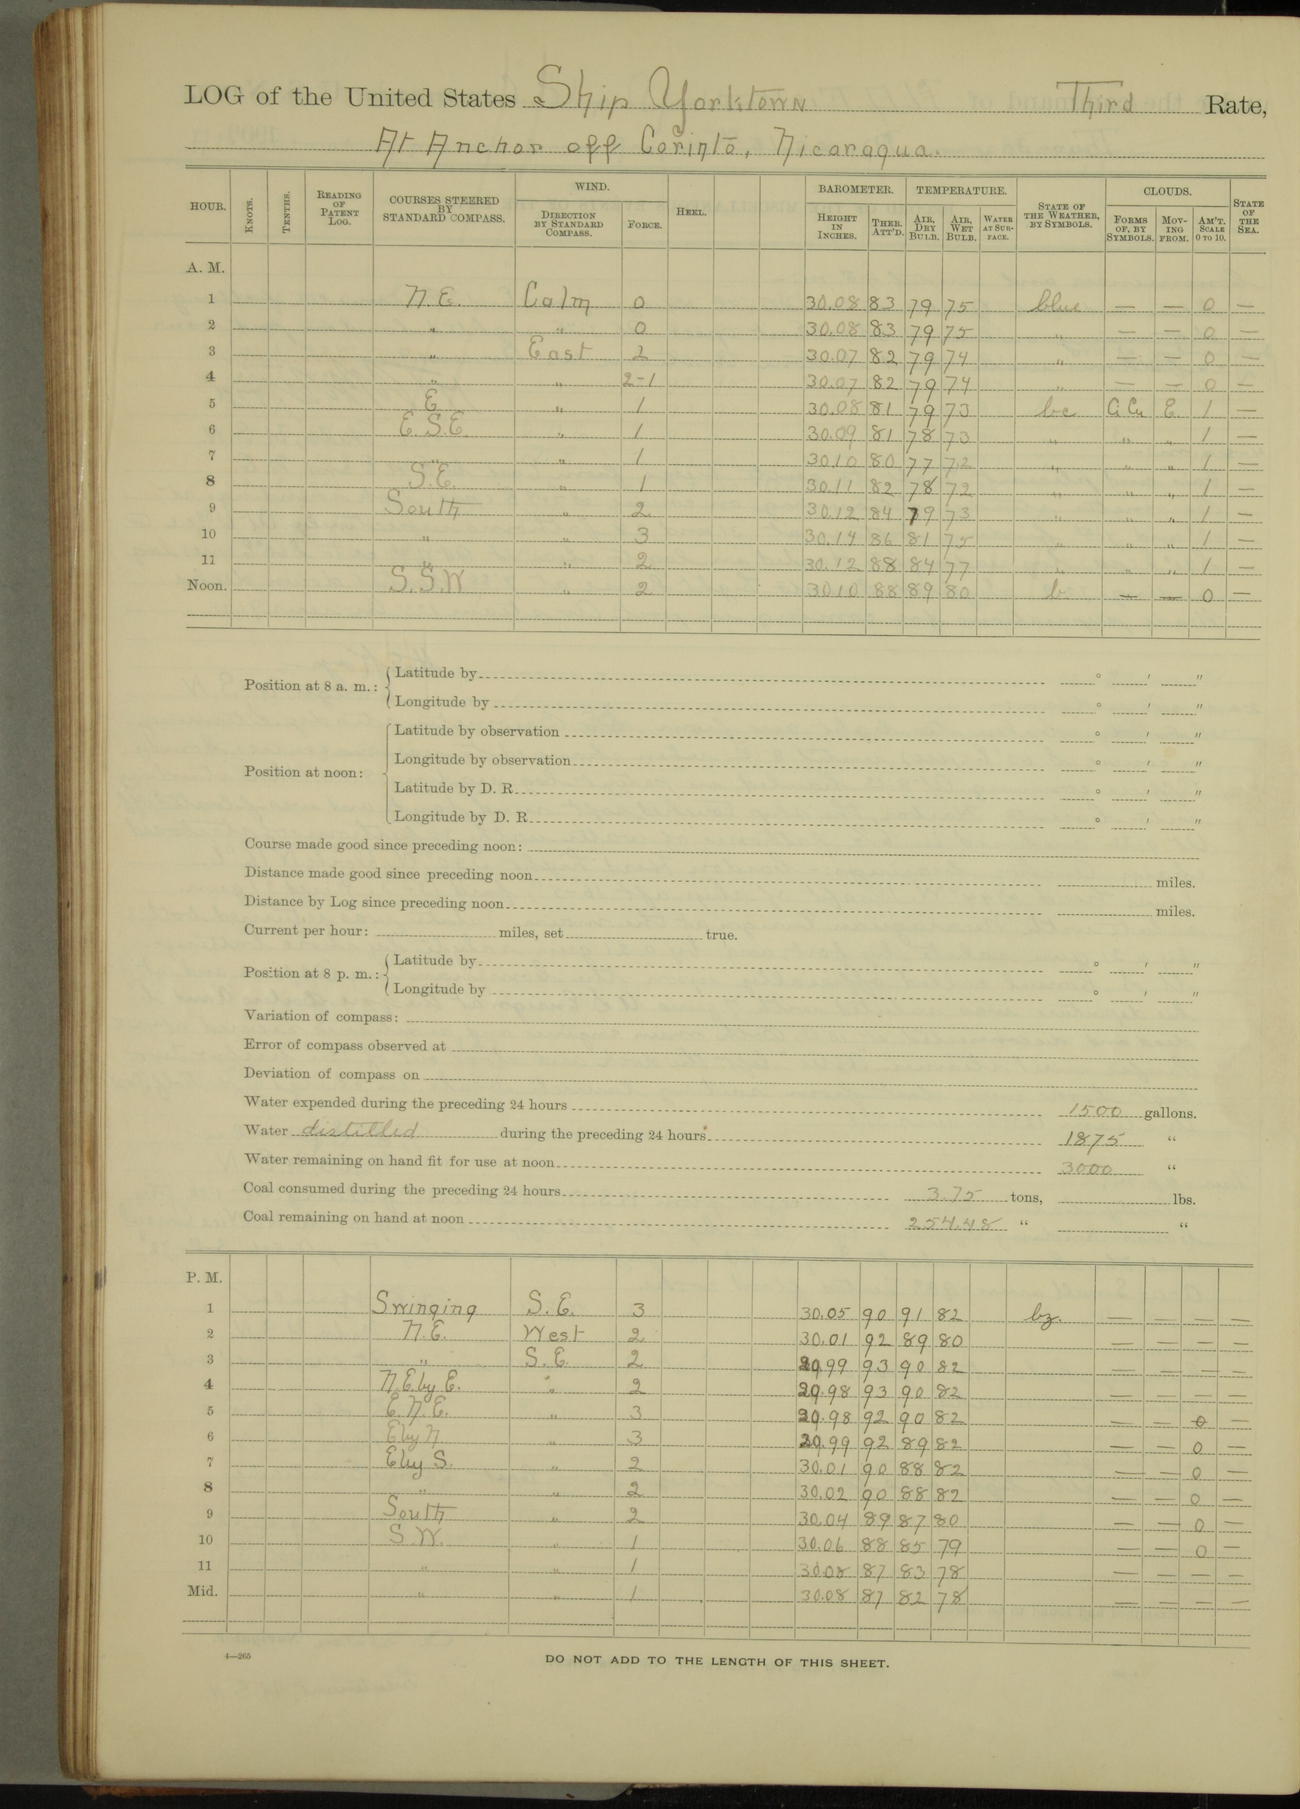 LOG of the United States Ship Yorktown Third Rate,
At Anchor off Corinto, Nicaragua.
HOUR. KNOTS. TENTHS. READING OF PATENT LOG. COURSES STEERED BY STANDARD COMPASS. WIND. DIRECTION BY STANDARD COMPASS. FORCE. HEEL. BAROMETER. HEIGHT IN INCHES. THER. ATT'D. TEMPERATURE. AIR, DRY BULB. AIR, WET BULB. WATER AT SURFACE. STATE OF THE WEATHER, BY SYMBOLS. CLOUDS. FORMS OF, BY SYMBOLS. MOVING FROM. AM'T. SCALE 0 TO 10. STATE OF THE SEA.
A. M.
1 N.E. Calm 0 30.08 83 79 75 blue — — 0 —
2 " " 0 30.08 83 79 75 " — — 0 —
3 " East 2 30.07 82 79 74 " — — 0 —
4 " " 2-1 30.07 82 79 74 " — — 0 —
5 E " 1 30.08 81 79 73 bc Ci Cu E. 1 —
6 E. S.E. " 1 30.09 81 78 73 " " " 1 —
7 " " 1 30.10 80 77 72 " " " 1 —
8 S.E. " 1 30.11 82 78 72 " " " 1 —
9 South " 2 30.12 84 79 73 " " " 1 —
10 " " 3 30.14 86 81 75 " " " 1 —
11 " " 2 30.12 88 84 77 " " " 1 —
Noon. S.S.W " 2 30.10 88 89 80 b — — 0 —
Position at 8 a. m.: Latitude by ° ' "
Longitude by ° ' "
Position at noon: Latitude by observation ° ' "
Longitude by observation ° ' "
Latitude by D. R. ° ' "
Longitude by D. R. ° ' "
Course made good since preceding noon:
Distance made good since preceding noon miles.
Distance by Log since preceding noon miles.
Current per hour: miles, set true.
Position at 8 p. m.: Latitude by ° ' "
Longitude by ° ' "
Variation of compass:
Error of compass observed at
Deviation of compass on
Water expended during the preceding 24 hours 1500 gallons.
Water distilled during the preceding 24 hours 1875 "
Water remaining on hand fit for use at noon 3000 "
Coal consumed during the preceding 24 hours 3.75 tons, lbs.
Coal remaining on hand at noon 254.48 " "
P. M.
1 Swinging S.E. 3 30.05 90 91 82 bz. — — — —
2 N.E. West 2 30.01 92 89 80 — — — —
3 " S.E. 2 29.99 93 90 82 — — — —
4 N.E by E. " 2 29.98 93 90 82 — — — —
5 E.N.E. " 3 29.98 92 90 82 — — 0 —
6 E by N " 3 29.99 92 89 82 — — 0 —
7 E by S. " 2 30.01 90 88 82 — — 0 —
8 " " 2 30.02 90 88 82 — — 0 —
9 South " 2 30.04 89 87 80 — — 0 —
10 S.W. " 1 30.06 88 85 79 — — 0 —
11 " " 1 30.08 87 83 78 — — — —
Mid. " " 1 30.08 87 82 78 — — — —
4—265
DO NOT ADD TO THE LENGTH OF THIS SHEET.